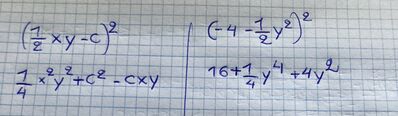 (1/2 xy - c)²
1/4 x²y² + c² - cxy
(-4 - 1/2 y²)²
16 + 1/4 y⁴ + 4y²